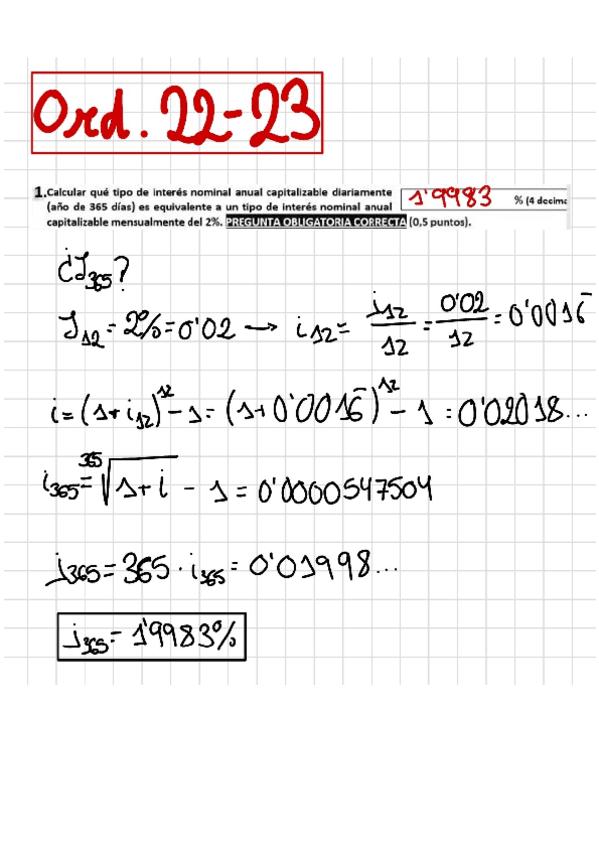 Ord. 22-23
1. Calcular qué tipo de interés nominal anual capitalizable diariamente
(año de 365 días) es equivalente a un tipo de interés nominal anual
capitalizable mensualmente del 2%. PREGUNTA OBLIGATORIA CORRECTA (0,5 puntos).
1'9983 % (4 decima
¿J365?
J12 = 2% = 0'02 → i12 = j12/12 = 0'02/12 = 0'0016̄
i = (1+i12)^12 - 1 = (1+0'0016̄)^12 - 1 = 0'02018...
i365 = ³⁶⁵√(1+i) - 1 = 0'0000547504
j365 = 365 · i365 = 0'01998...
j365 = 1'9983%